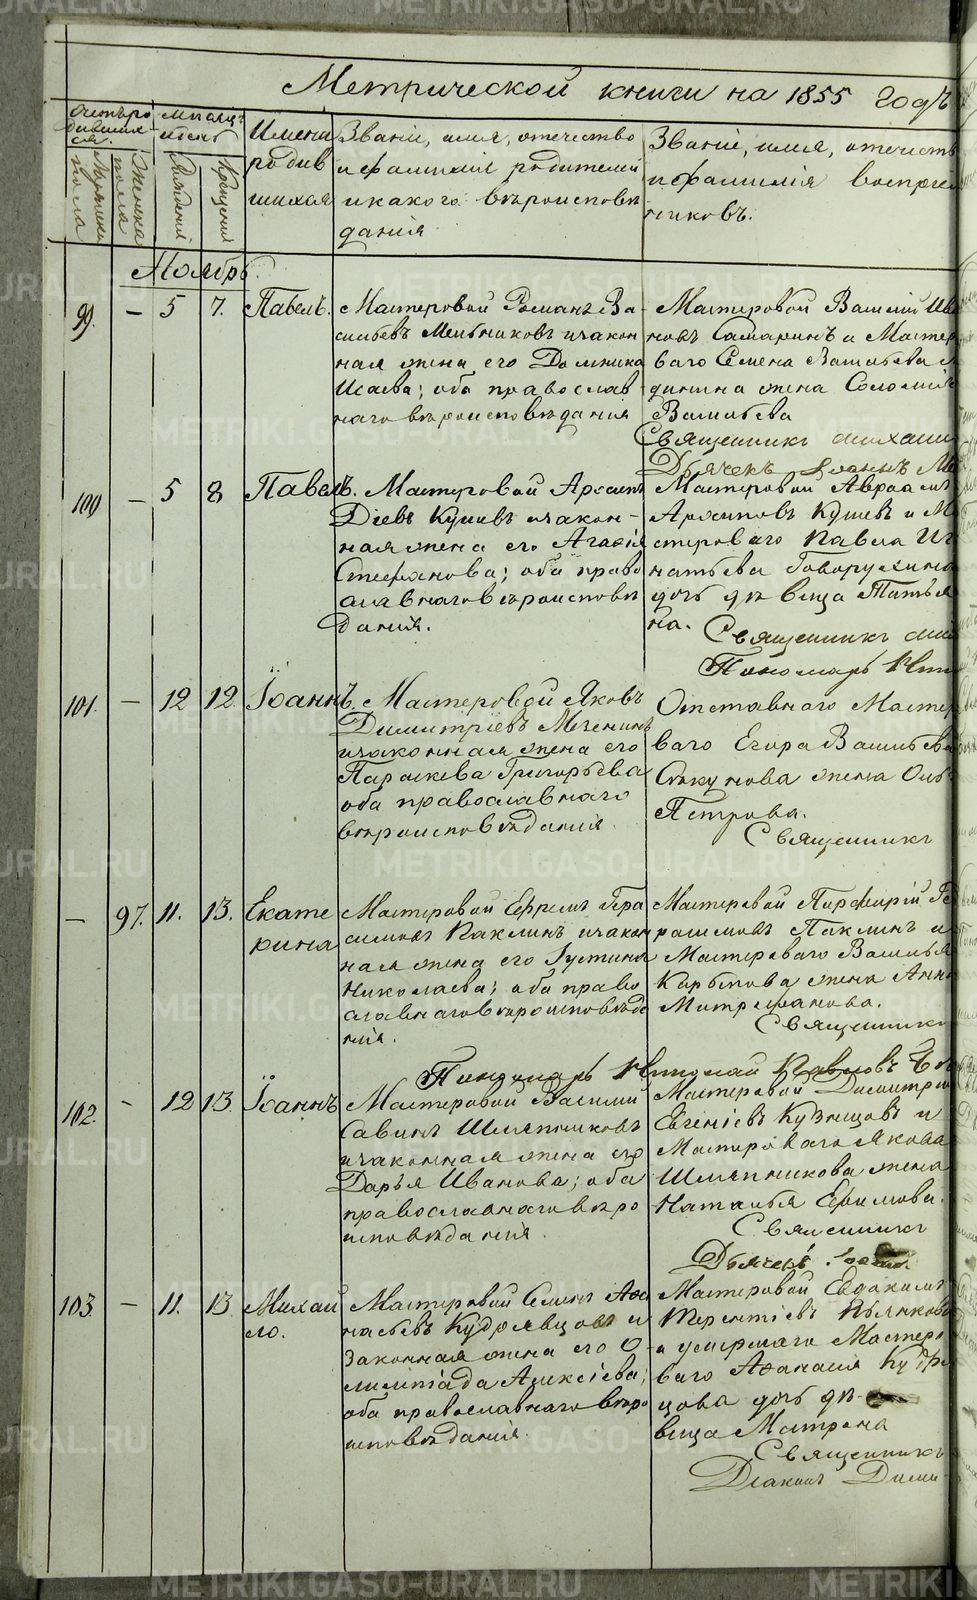 Метрической книги на 1855 годъ
Имена родившихся
Званіе, имя, отечество и фамилія родителей и какого вѣроисповѣданія
Званіе, имя, отечеств и фамилія воспріемниковъ.
Мужеска пола
Женска пола
Рожденія
Крещенія
Ноябрь.
99. — 5 7. Павелъ.
Мастеровой Романъ Ва-
сильевъ Мельниковъ и закон
ная жена его Домника
Исаева; оба православ
наго вѣроисповѣданія
Мастеровой Василій Ива
новъ Самаринъ и Мастер
ваго Семена Васильева
жена Соломія
Васильева
Священникъ Михаил
Дьячекъ Іоаннъ
100 — 5 8 Павелъ.
Мастеровой Арсеній
Кущевъ и закон-
ная жена его Агафія
Стефанова; оба право
славнаго вѣроисповѣ
данія.
Мастеровой Авраамъ
Архиповъ Кущевъ и М
стероваго Павла Иг
натьева Говорухина
дочь дѣвица Татья
на.
Священникъ Ми
Пономарь
101. — 12 12 Іоаннъ.
Мастеровой Яковъ
Димитріевъ Мезенинъ
и законная жена его
Параскева Григорьева
оба православнаго
вѣроисповѣданія.
Отставнаго Мастер
ваго Егора Васильева
жена Оль
Петрова.
Священникъ
— 97. 11. 13. Екате
рина
Мастеровой Ефремъ Гера
симовъ Паклинъ и закон
ная жена его Іустина
Николаева; оба право
славнаго вѣроисповѣда
нія.
Мастеровой Порфирій Ге
расимовъ Паклинъ и
Мастероваго Василья
Карыпова жена Анна
Митрофанова.
Священникъ
Пономарь Николай Павловъ
102. — 12 13. Іоаннъ
Мастеровой Василій
Савинъ Шляпниковъ
и законная жена его
Дарья Иванова; оба
православнаго вѣро
исповѣданія.
Мастеровой Димитрій
Евгеніевъ Кузнецовъ и
Мастероваго Якова
Шляпникова жена
Наталья Ефимова.
Священникъ
Дьячекъ
103. — 11. 13 Михаи
ло.
Мастеровой Семенъ Афа
насьевъ Кудрявцовъ и
законная жена его О-
лимпіада Алексіева;
оба православнаго вѣро
исповѣданія.
Мастеровой Евдокимъ
Терентіевъ
и умершаго Мастеро
ваго Афанасія Кудря
цова дочь дѣ-
вица Матрена
Священникъ
Діаконъ Дими